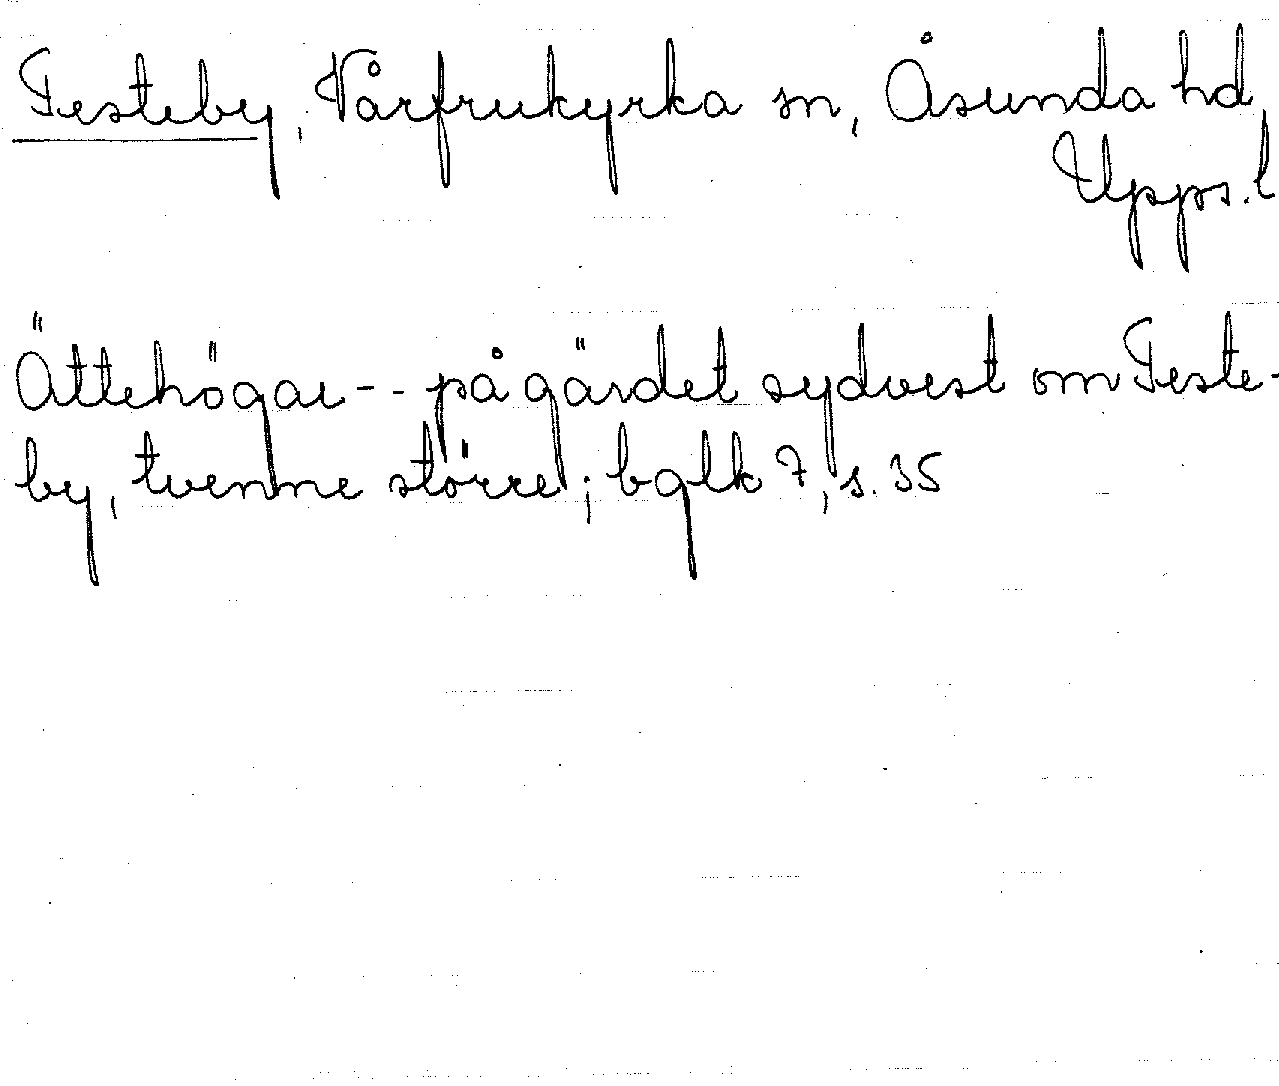 Testeby, Vårfrukyrka sn, Åsunda hd,
Upps. l
Ättehögar -- på gärdet sydvest om Teste-
by, tvenne större; bglk 7, s. 35